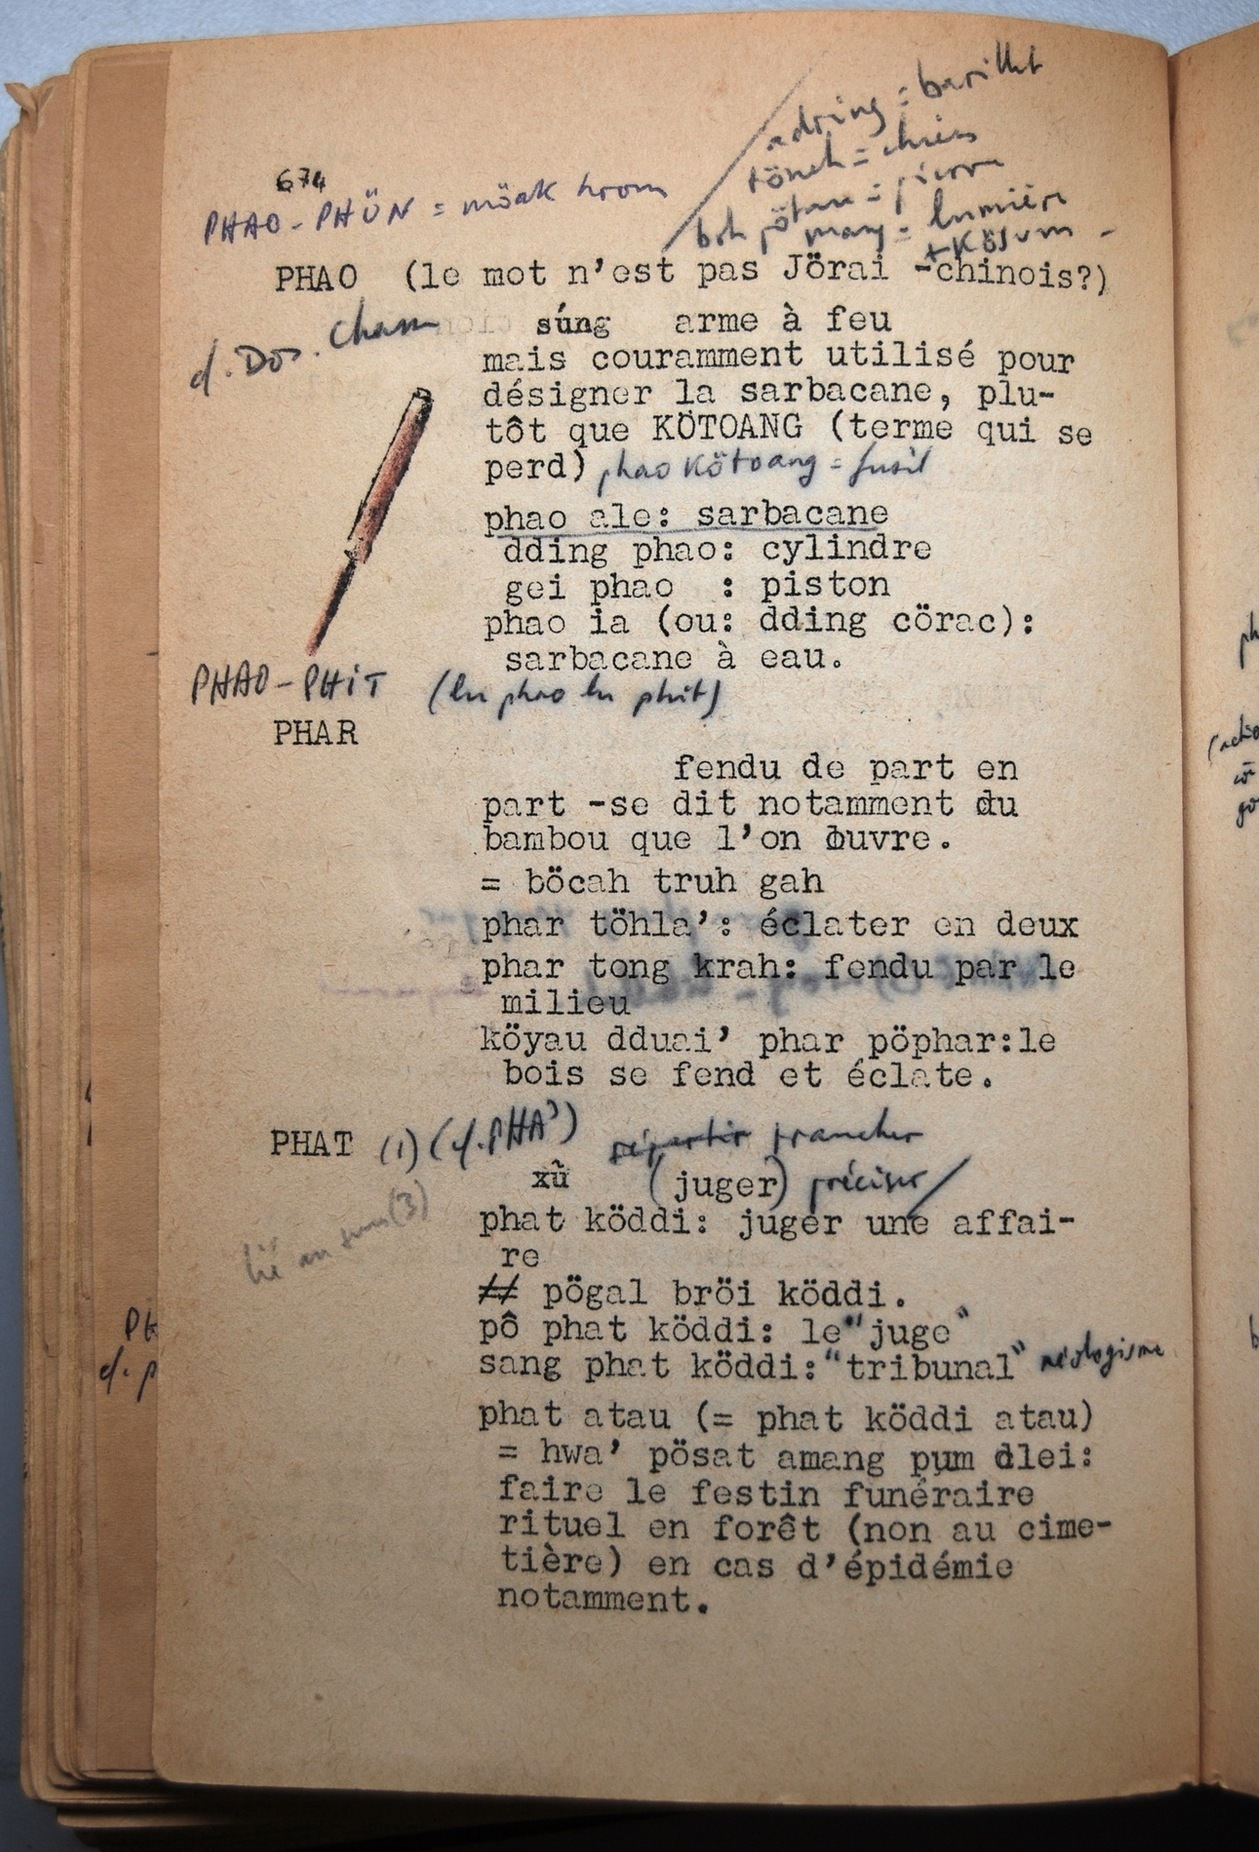 adring = barillet
töneh = chien
boh pötau = pierre
pmang = lumière
+ Kösum -
674
PHAO-PHÜN = möak hrom
PHAO (le mot n'est pas Jörai - chinois?)
Cham súng arme à feu
mais couramment utilisé pour
désigner la sarbacane, plu-
tôt que KÖTOANG (terme qui se
perd) phao Kötoang = fusil
phao ale: sarbacane
dding phao: cylindre
gei phao : piston
phao ia (ou: dding cörac):
sarbacane à eau.
PHAO-PHIT (lu phao lu phit)
PHAR
fendu de part en
part -se dit notamment du
bambou que l'on ouvre.
= böcah truh gah
phar töhla': éclater en deux
phar tong krah: fendu par le
milieu
köyau dduai' phar pöphar:le
bois se fend et éclate.
PHAT (1) (cf. PHA') répartir trancher
xũ (juger) préciser /
lié au sens (3)
phat köddi: juger une affai-
re
≠ pögal bröi köddi.
pô phat köddi: le "juge"
sang phat köddi: "tribunal" néologisme
phat atau (= phat köddi atau)
= hwa' pösat amang pum dlei:
faire le festin funéraire
rituel en forêt (non au cime-
tière) en cas d'épidémie
notamment.